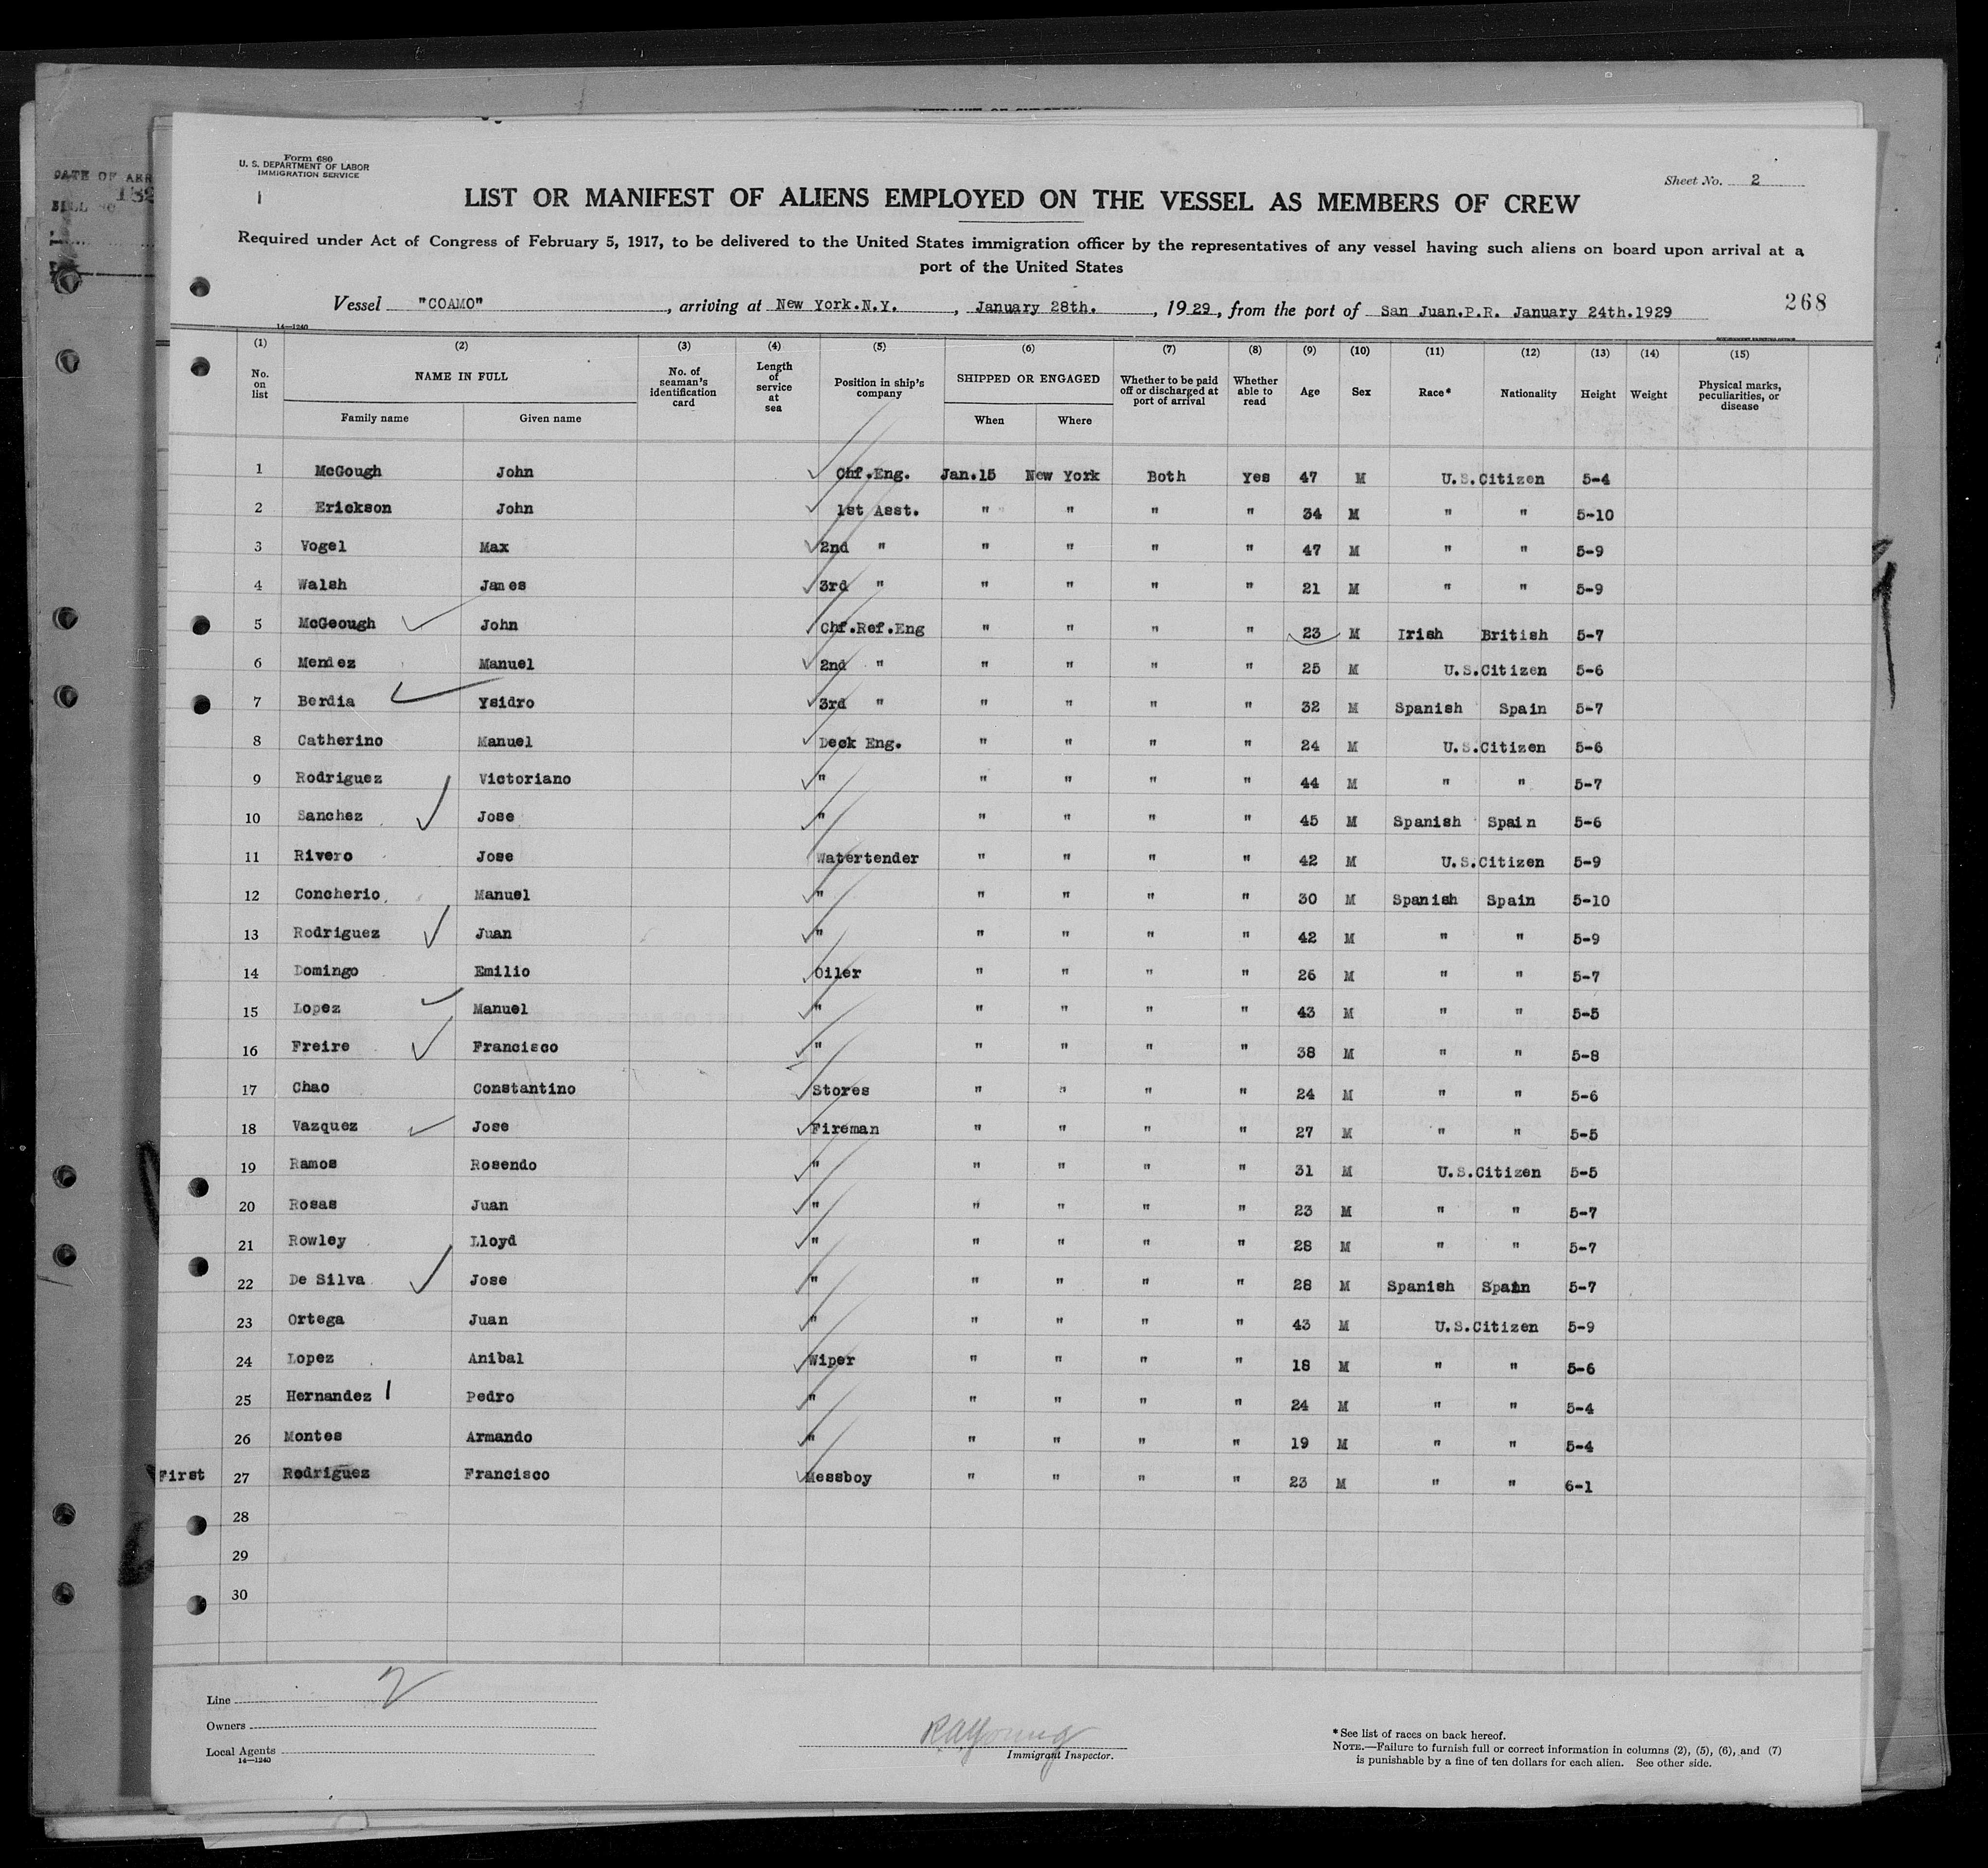 DATE OF ARR
Form 680
U. S. DEPARTMENT OF LABOR
IMMIGRATION SERVICE
Sheet No. 2
LIST OR MANIFEST OF ALIENS EMPLOYED ON THE VESSEL AS MEMBERS OF CREW
Required under Act of Congress of February 5, 1917, to be delivered to the United States immigration officer by the representatives of any vessel having such aliens on board upon arrival at a
port of the United States
Vessel "COAMO", arriving at New York.N.Y., January 28th., 1929, from the port of San Juan.P.R. January 24th.1929 268
14—1240
(1) (2) (3) (4) (5) (6) (7) (8) (9) (10) (11) (12) (13) (14) (15)
No. on list NAME IN FULL No. of seaman's identification card Length of service at sea Position in ship's company SHIPPED OR ENGAGED Whether to be paid off or discharged at port of arrival Whether able to read Age Sex Race* Nationality Height Weight Physical marks, peculiarities, or disease
Family name Given name When Where
1 McGough John Chf.Eng. Jan.15 New York Both Yes 47 M U.S.Citizen 5-4
2 Erickson John 1st Asst. " " " " 34 M " " 5-10
3 Vogel Max 2nd " " " " " 47 M " " 5-9
4 Walsh James 3rd " " " " " 21 M " " 5-9
5 McGeough John Chf.Ref.Eng " " " " 23 M Irish British 5-7
6 Mendez Manuel 2nd " " " " " 25 M U.S.Citizen 5-6
7 Berdia Ysidro 3rd " " " " " 32 M Spanish Spain 5-7
8 Catherino Manuel Deck Eng. " " " " 24 M U.S.Citizen 5-6
9 Rodriguez Victoriano " " " " " 44 M " " 5-7
10 Sanchez Jose " " " " " 45 M Spanish Spain 5-6
11 Rivero Jose Watertender " " " " 42 M U.S.Citizen 5-9
12 Concherio Manuel " " " " " 30 M Spanish Spain 5-10
13 Rodriguez Juan " " " " " 42 M " " 5-9
14 Domingo Emilio Oiler " " " " 26 M " " 5-7
15 Lopez Manuel " " " " " 43 M " " 5-5
16 Freire Francisco " " " " " 38 M " " 5-8
17 Chao Constantino Stores " " " " 24 M " " 5-6
18 Vazquez Jose Fireman " " " " 27 M " " 5-5
19 Ramos Rosendo " " " " " 31 M U.S.Citizen 5-5
20 Rosas Juan " " " " " 23 M " " 5-7
21 Rowley Lloyd " " " " " 28 M " " 5-7
22 De Silva Jose " " " " " 28 M Spanish Spain 5-7
23 Ortega Juan " " " " " 43 M U.S.Citizen 5-9
24 Lopez Anibal Wiper " " " " 18 M " " 5-6
25 Hernandez Pedro " " " " " 24 M " " 5-4
26 Montes Armando " " " " " 19 M " " 5-4
First 27 Rodriguez Francisco Messboy " " " " 23 M " " 6-1
28
29
30
2
Line
Owners
Local Agents
14—1240
RAYoung
Immigrant Inspector.
*See list of races on back hereof.
NOTE.—Failure to furnish full or correct information in columns (2), (5), (6), and (7)
is punishable by a fine of ten dollars for each alien. See other side.